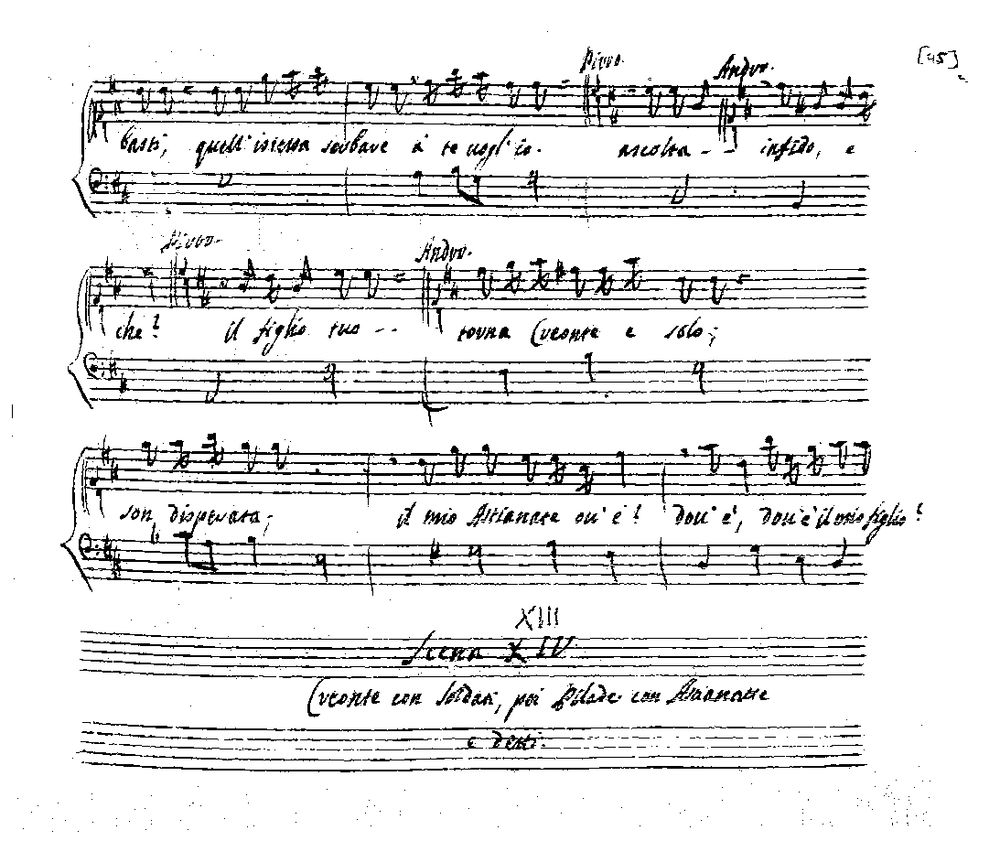 [45]
Pirro. Andro.
basti, quell' istessa serbare à te vogl' io. ascolta - - infido, e
Pirro. Andro.
che? il figlio tuo - - torna Creonte e solo;
son disperata; il mio Astianatte ov' è? dov' è, dov' è il mio figlio?
6
XIII
Scena XIV
Creonte con Soldati, poi Pilade con Astianatte
e detti.